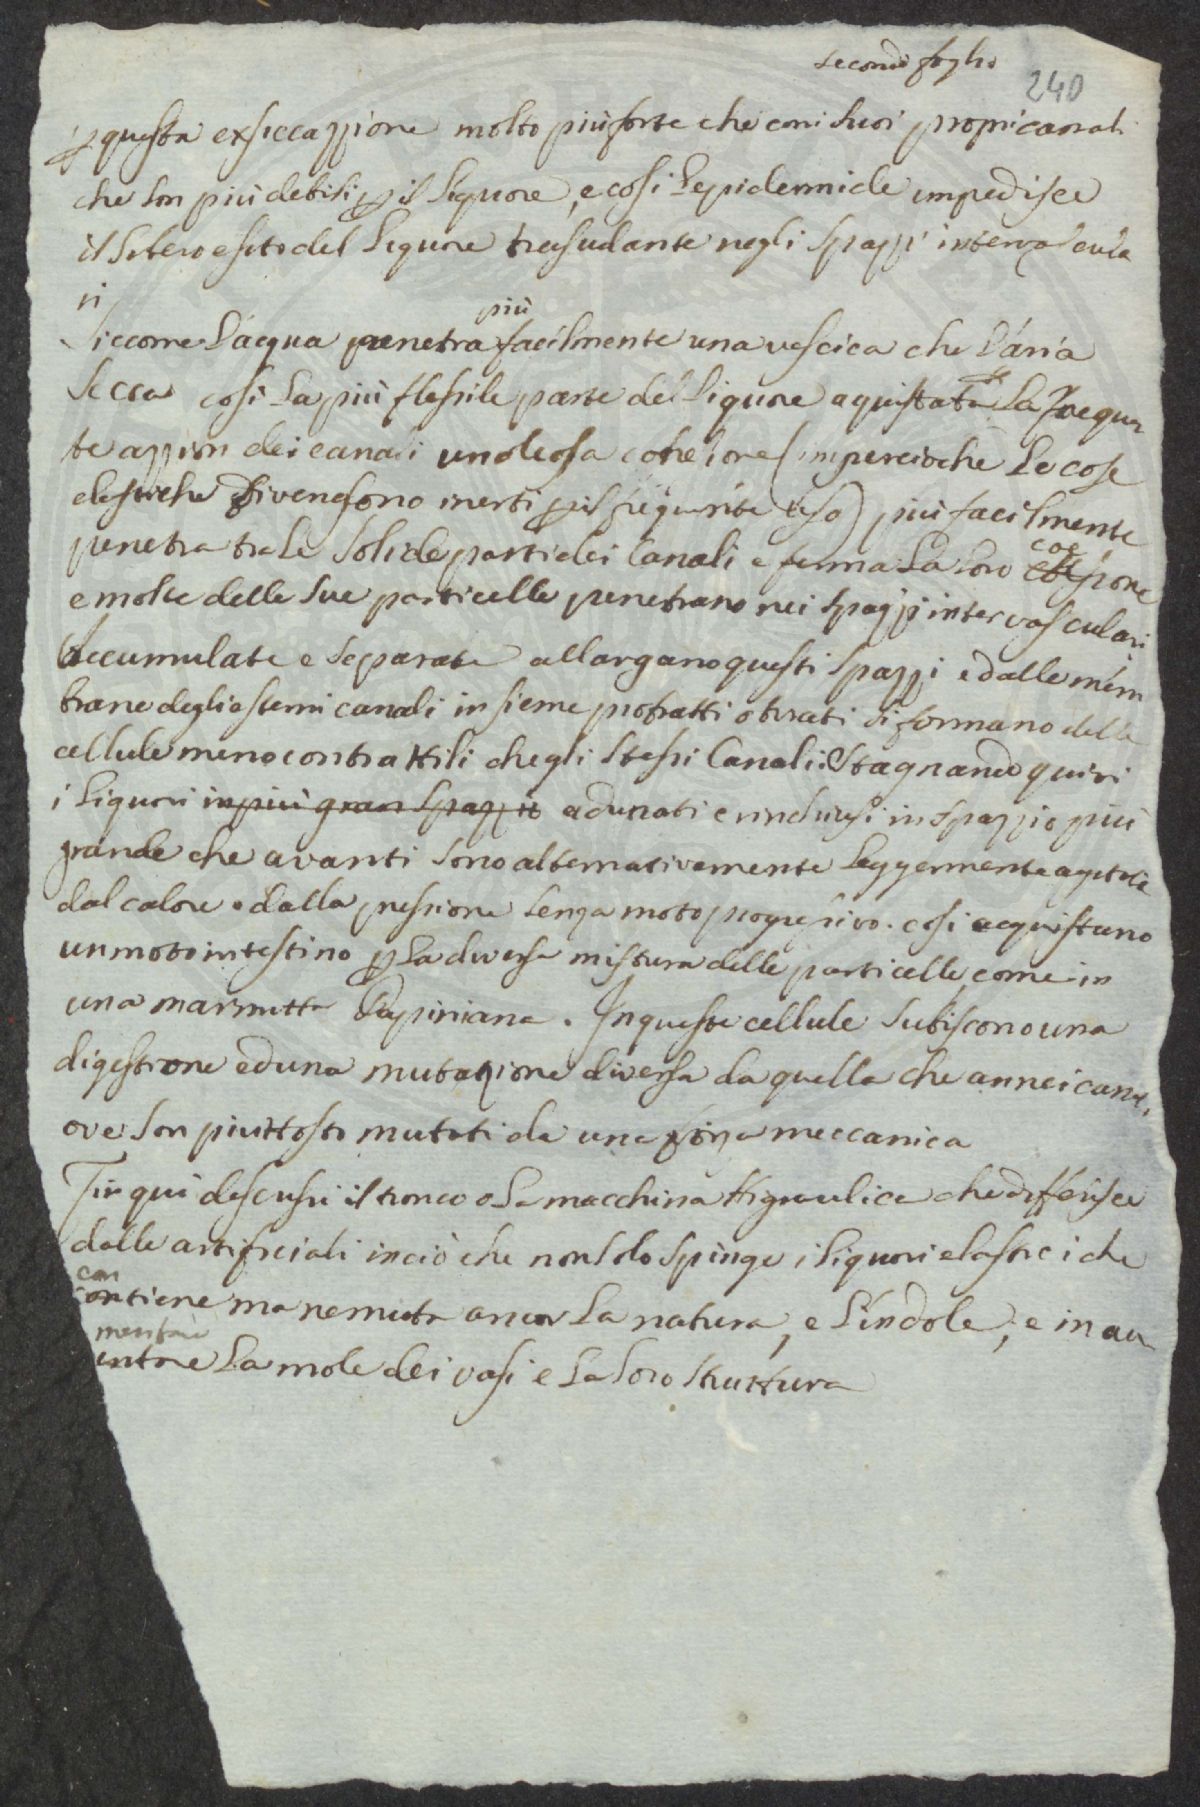 secondo foglio
240
p questa exsiccazzione molto più forte che con i suoi proprii canali
che son più debili p il liquore, e così l'epidermide impedisce
il libero esito del liquore trasudante negli spazzi intervascula
ri
Siccome l'acqua penetra più facilmente una vescica che l'aria
secca così la più flessile parte del liquore aquistata p la frequen
te azzion dei canali un oleosa coesione (impercioche le cose
elastiche divengono inerti p il frequente uso) più facilmente
penetra tra le solide parti dei canali e ferma la loro coe
zione
e molte delle sue particelle penetrano nei spazzi intervasculari
Accumulate e separate allargano questi spazzi e dalle mem
brane degli esterni canali insieme protratti oturati si formano delle
cellule meno contrattili che gli stessi canali: Stagnando quivi
i liquori in più gran spazzio adunati e rinchiusi in spazzio più
grande che avanti sono alternativamente leggermente agitati
dal calore e dalla pressione senza moto progressivo. così acquistano
un moto intestino p la diversa mistura delle particelle come in
una marmitta Papiniana. In queste cellule subiscono una
digestione ed una mutazione diversa da quella che an nei canali
ove son piuttosto mutati da una forza meccanica
Fin qui descussi il tronco o la macchina Higraulica che differisce
dalle artificiali in ciò che non solo spinge i liquori elastici che
contiene ma ne muta ancor la natura, e l'indole, e in au
mentare la mole dei vasi e la loro struttura